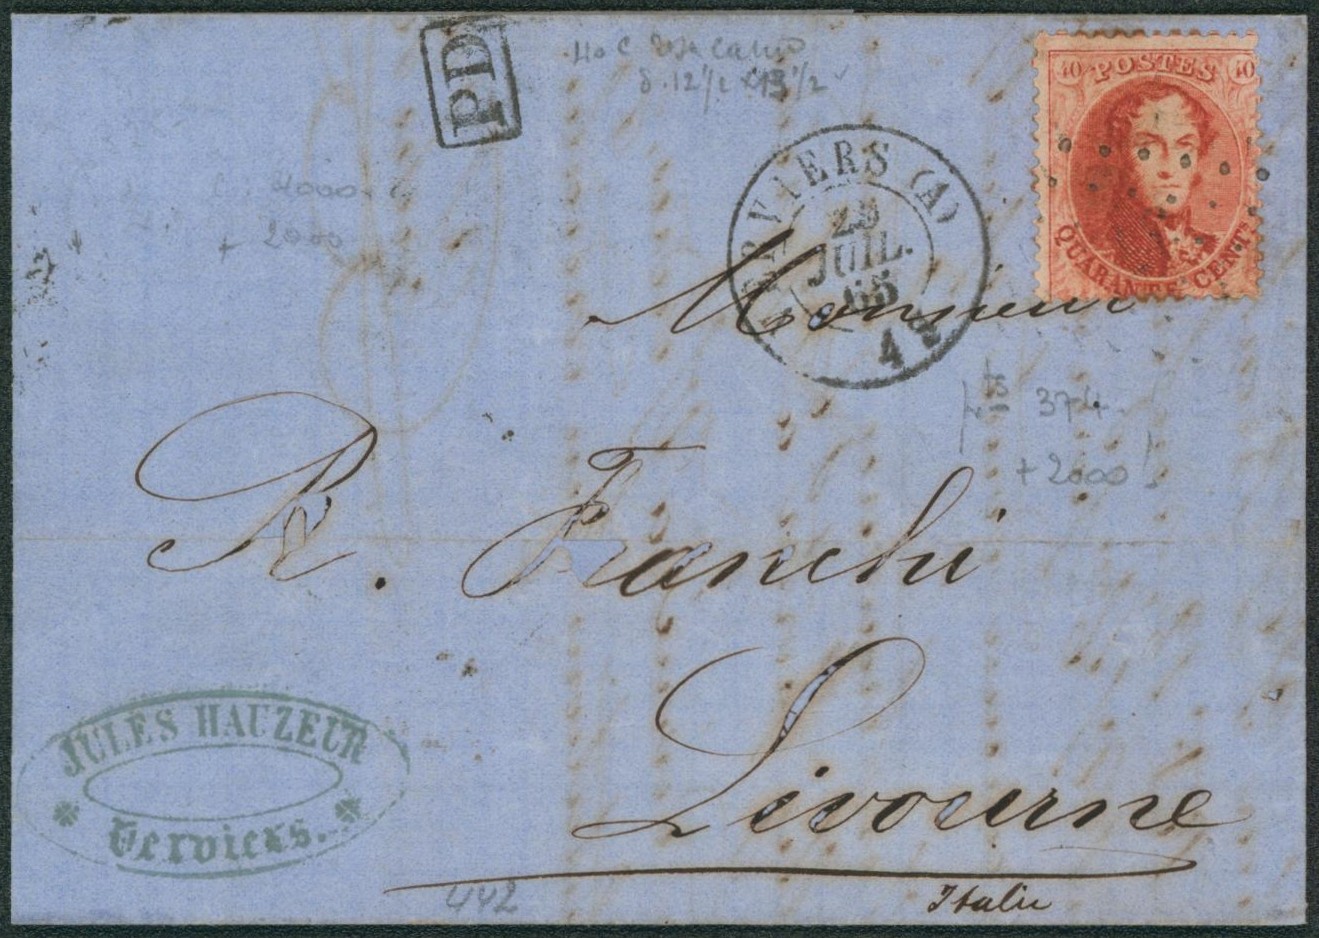 PD
40 c
d. 12 1/2 x 13 1/2
40 POSTES 40
QUARANTE CENTS
VERVIERS (A)
25
JUIL.
65
4000
+ 2000
Monsieur
pts 374
+ 2000!
R. Franchi
Livourne
Italie
JULES HAUZEUR
Verviers.
442